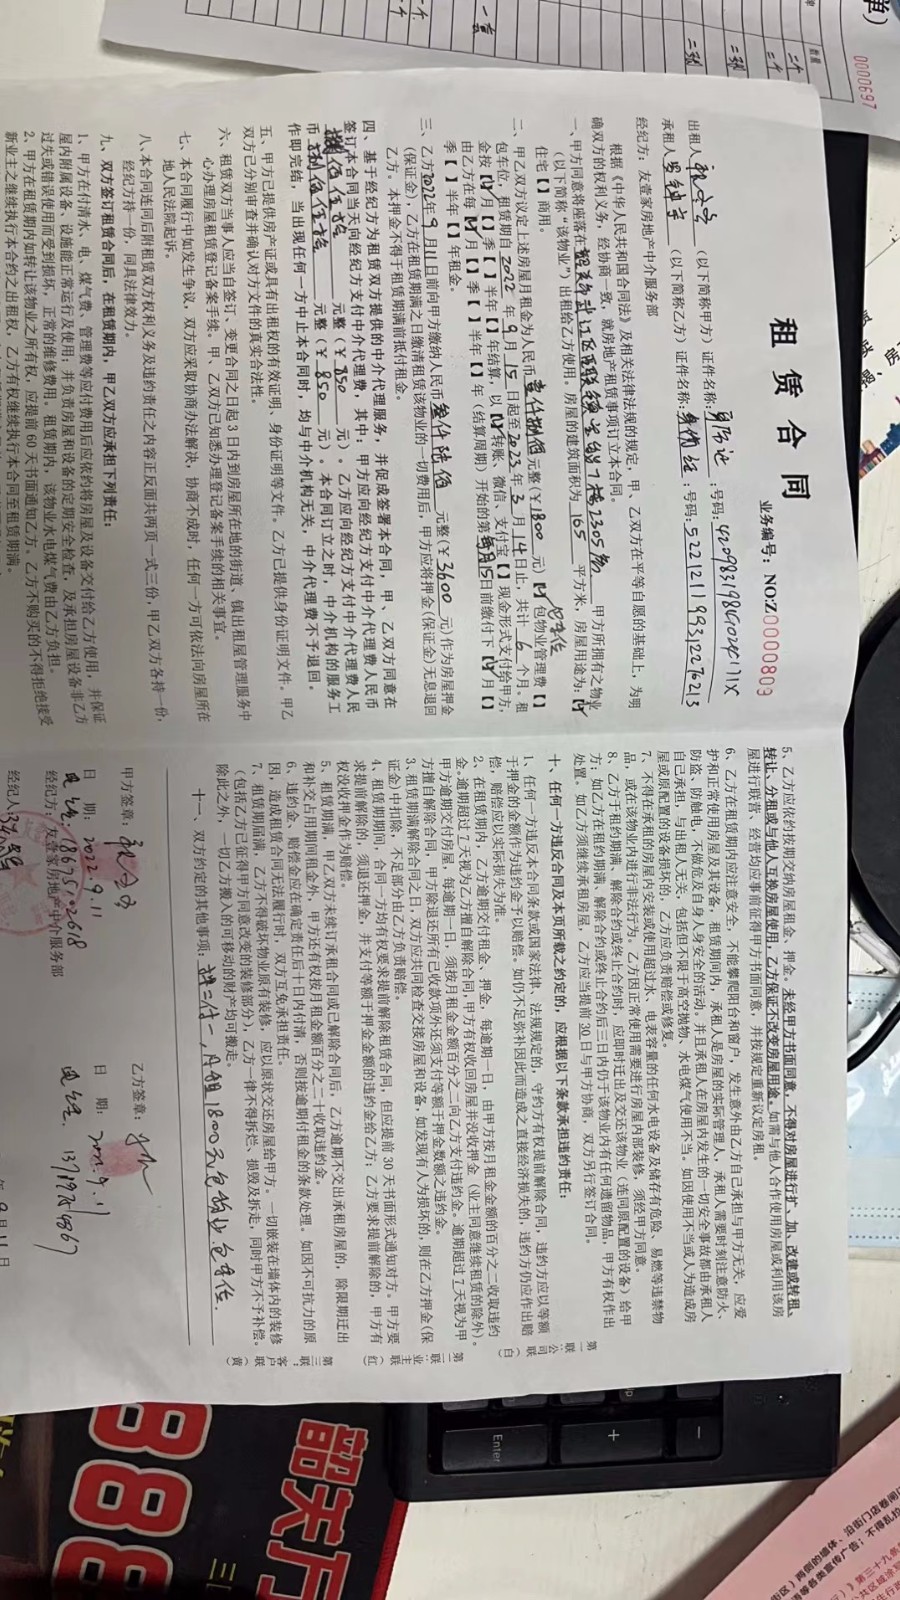 租赁合同
业务编号：NO:Z0000809
出租人
（以下简称甲方）证件名称：
：号码：
承租人
（以下简称乙方）证件名称：身份证：号码：522121199312276213
经纪方：友壹家房地产中介服务部
根据《中华人民共和国合同法》及相关法律法规的规定，甲、乙双方在平等自愿的基础上，为明
确双方的权利义务，经协商一致，就房地产租赁事项订立本合同。
一、甲方同意将座落在韶关市武江区
2305房 甲方所拥有之物业
（以下简称“该物业”）出租给乙方使用。房屋的建筑面积为 165 平方米，房屋用途为：【✓】
住宅【 】商用。
二、甲乙双方议定上述房屋月租金为人民币壹仟捌佰元整（¥1800元）【✓】包物业管理费【 】
包车位，租赁期自2022年9月15日起至2023年3月14日止，共计6个月。租
金按【✓】月【 】季【 】半年【 】年结算，以【✓】转账、微信、支付宝【 】现金形式支付给甲方，
由乙方在每【✓】月【 】季【 】半年【 】年（结算周期）开始的第每月15日前缴付下【✓】月【 】
季【 】半年【 】年租金。
三、乙方2022年9月11日前向甲方缴纳人民币叁仟陆佰元整（¥3600元）作为房屋押金
（保证金），乙方在租赁期满之日缴清租赁该物业的一切费用后，甲方应将押金（保证金）无息退回
乙方。本押金不得于租赁期满前抵付租金。
四、基于经纪方为租赁双方提供的中介代理服务，并促成签署本合同，甲、乙双方同意在
签订本合同当天向经纪方支付中介代理费，其中：甲方应向经纪方支付中介代理费人民币
捌佰伍拾 元整（¥850元）。乙方应向经纪方支付中介代理费人民
币捌佰伍拾 元整（¥850元）。本合同订立之时，中介机构的服务工
作即完结，当出现任何一方中止本合同时，均与中介机构无关，中介代理费不予退回。
五、甲方已提供房产证或具有出租权的有效证明、身份证明等文件。乙方已提供身份证明文件。甲乙
双方已分别审查并确认对方文件的真实合法性。
六、租赁双方当事人应当自签订、变更合同之日起3日内到房屋所在地的街道、镇出租屋管理服务中
心办理房屋租赁登记备案手续。甲、乙双方已知悉办理登记备案手续的相关事宜。
七、本合同履行中如发生争议，双方应采取协商办法解决，协商不成时，任何一方可依法向房屋所在
地人民法院起诉。
八、本合同连同后附租赁双方权利义务及违约责任之内容正反面共两页一式三份，甲乙双方各持一份，
经纪方持一份，同具法律效力。
九、双方签订租赁合同后，在租赁期内，甲乙双方应承担下列责任：
1、甲方在付清水、电、煤气费、管理费等应付费用后应依约将房屋及设备交付给乙方使用，并保证
屋内附属设备、设施能正常运行及使用，并负责房屋和设备的定期安全检查，及承担房屋设备非乙方
过失或错误使用而受到损坏，正常的维修费用。租赁期内，该物业水电煤气费由乙方负担。
2、甲方在租赁期内如转让该物业之所有权，应提前60天书面通知乙方。乙方不购买的不得拒绝接受
新业主之继续执行本合约之出租权，乙方有权继续执行本合同至租赁期满。
5、乙方应依约按期交纳房屋租金、押金。未经甲方书面同意，不得对房屋进行扩、加、改建或转租、
转让、分租或与他人互换房屋使用，乙方保证不改变房屋用途。如需与他人合作使用房屋或利用该房
屋进行联营、经营均应事前征得甲方书面同意，并按规定重新议定房租。
6、乙方在租赁期内应注意安全，不能攀爬阳台和窗户，发生意外由乙方自己承担与甲方无关，应爱
护和正常使用房屋及其设备，租赁期间内，承租人是房屋的实际管理人，承租人需要时刻注意防火、
防盗、防触电，不做危及自身人身安全的活动，并且承租人在房屋内发生的一切安全事故都由承租人
自己承担，与出租人无关，包括但不限于高空抛物、水电煤气使用不当。如因使用不当或人为造成房
屋或原配置的设备损坏的，乙方应负责赔偿或修复。
7、不得在承租的房屋内安装或使用超过水、电表容量的任何水电设备及储存有危险、易燃等违禁物
品，或在该物业内进行非法行为。乙方因正常使用需要进行房屋内部装修，须经甲方同意。
8、乙方于租约期满、解除合约或终止合约时，应即时迁出及交还该物业（连同原配置的设备）给甲
方；如乙方在租约期满、解除合约或终止合约后三日内仍于该物业内有任何遗留物品，甲方有权作出
处置。如乙方须继续承租房屋，乙方应当提前30日与甲方协商，双方另行签订合同。
十、任何一方违反合同及本页所载之约定的，应根据以下条款承担违约责任：
1、任何一方违反本合同条款或国家法律、法规规定的，守约方有权提前解除合同，违约方应以等额
于押金的金额作为违约金予以赔偿。如仍不足弥补因此而造成之直接经济损失的，违约方仍应作出赔
偿，赔偿应以实际损失为准。
2、在租赁期内，乙方逾期交付租金、押金，每逾期一日，由甲方按月租金金额的百分之二收取违约
金。逾期超过7天视为乙方擅自解除合同，甲方有权收回房屋并没收押金（业主同意继续租赁的除外）。
甲方逾期交付房屋，每逾期一日，须按月租金金额百分之二向乙方支付违约金。逾期超过7天视为甲
方擅自解除合同，甲方除退还所有已收款项外还须支付等额于押金数额之违约金。
3、租赁期满解除合同之日，双方应共同检查交接房屋和设备，如发现有人为损坏的，则在乙方押金（保
证金）中扣除，不足部分由乙方负责赔偿。
4、租赁期期间，合同一方均有权要求提前解除租赁合同，但应提前30天书面形式通知对方。甲方要
求提前解除的，须退还押金，并支付等额于押金金额的违约金给乙方；乙方要求提前解除的，甲方有
权没收押金作为赔偿。
5、租赁期满，甲乙双方未续订承租合同或已解除合同后，乙方逾期不交出承租房屋的，除限期迁出
和补交占用期间租金外，甲方还有权按月租金额百分之二十收取违约金。
6、违约金、赔偿金应在确定责任后十日内付清，否则按逾期付租金的条款处理。如因不可抗力的原
因，造成租赁合同无法履行时，双方互免承担责任。
7、租赁期届满，乙方不得破坏物业原有装修，应以原状交还房屋给甲方。一切嵌装在墙体内的装修
（包括乙方已证得甲方同意改变的装修部分），乙方一律不得拆烂、损毁及拆走，同时甲方不予补偿。
除此之外，一切乙方搬入的可移动的财产均可搬走。
十一、双方约定的其他事项：押二付一，月租1800元包物业包车位.
甲方签章：
乙方签章：
日期：2022.9.11
日期：2022.9.11
电话：18675102618
电话：
经纪方：友壹家房地产中介服务部
经纪人：
第一联：公司（白）
第二联：业主（红）
第三联：客户（黄）
0000697
韶关万
888
Enter
+
-